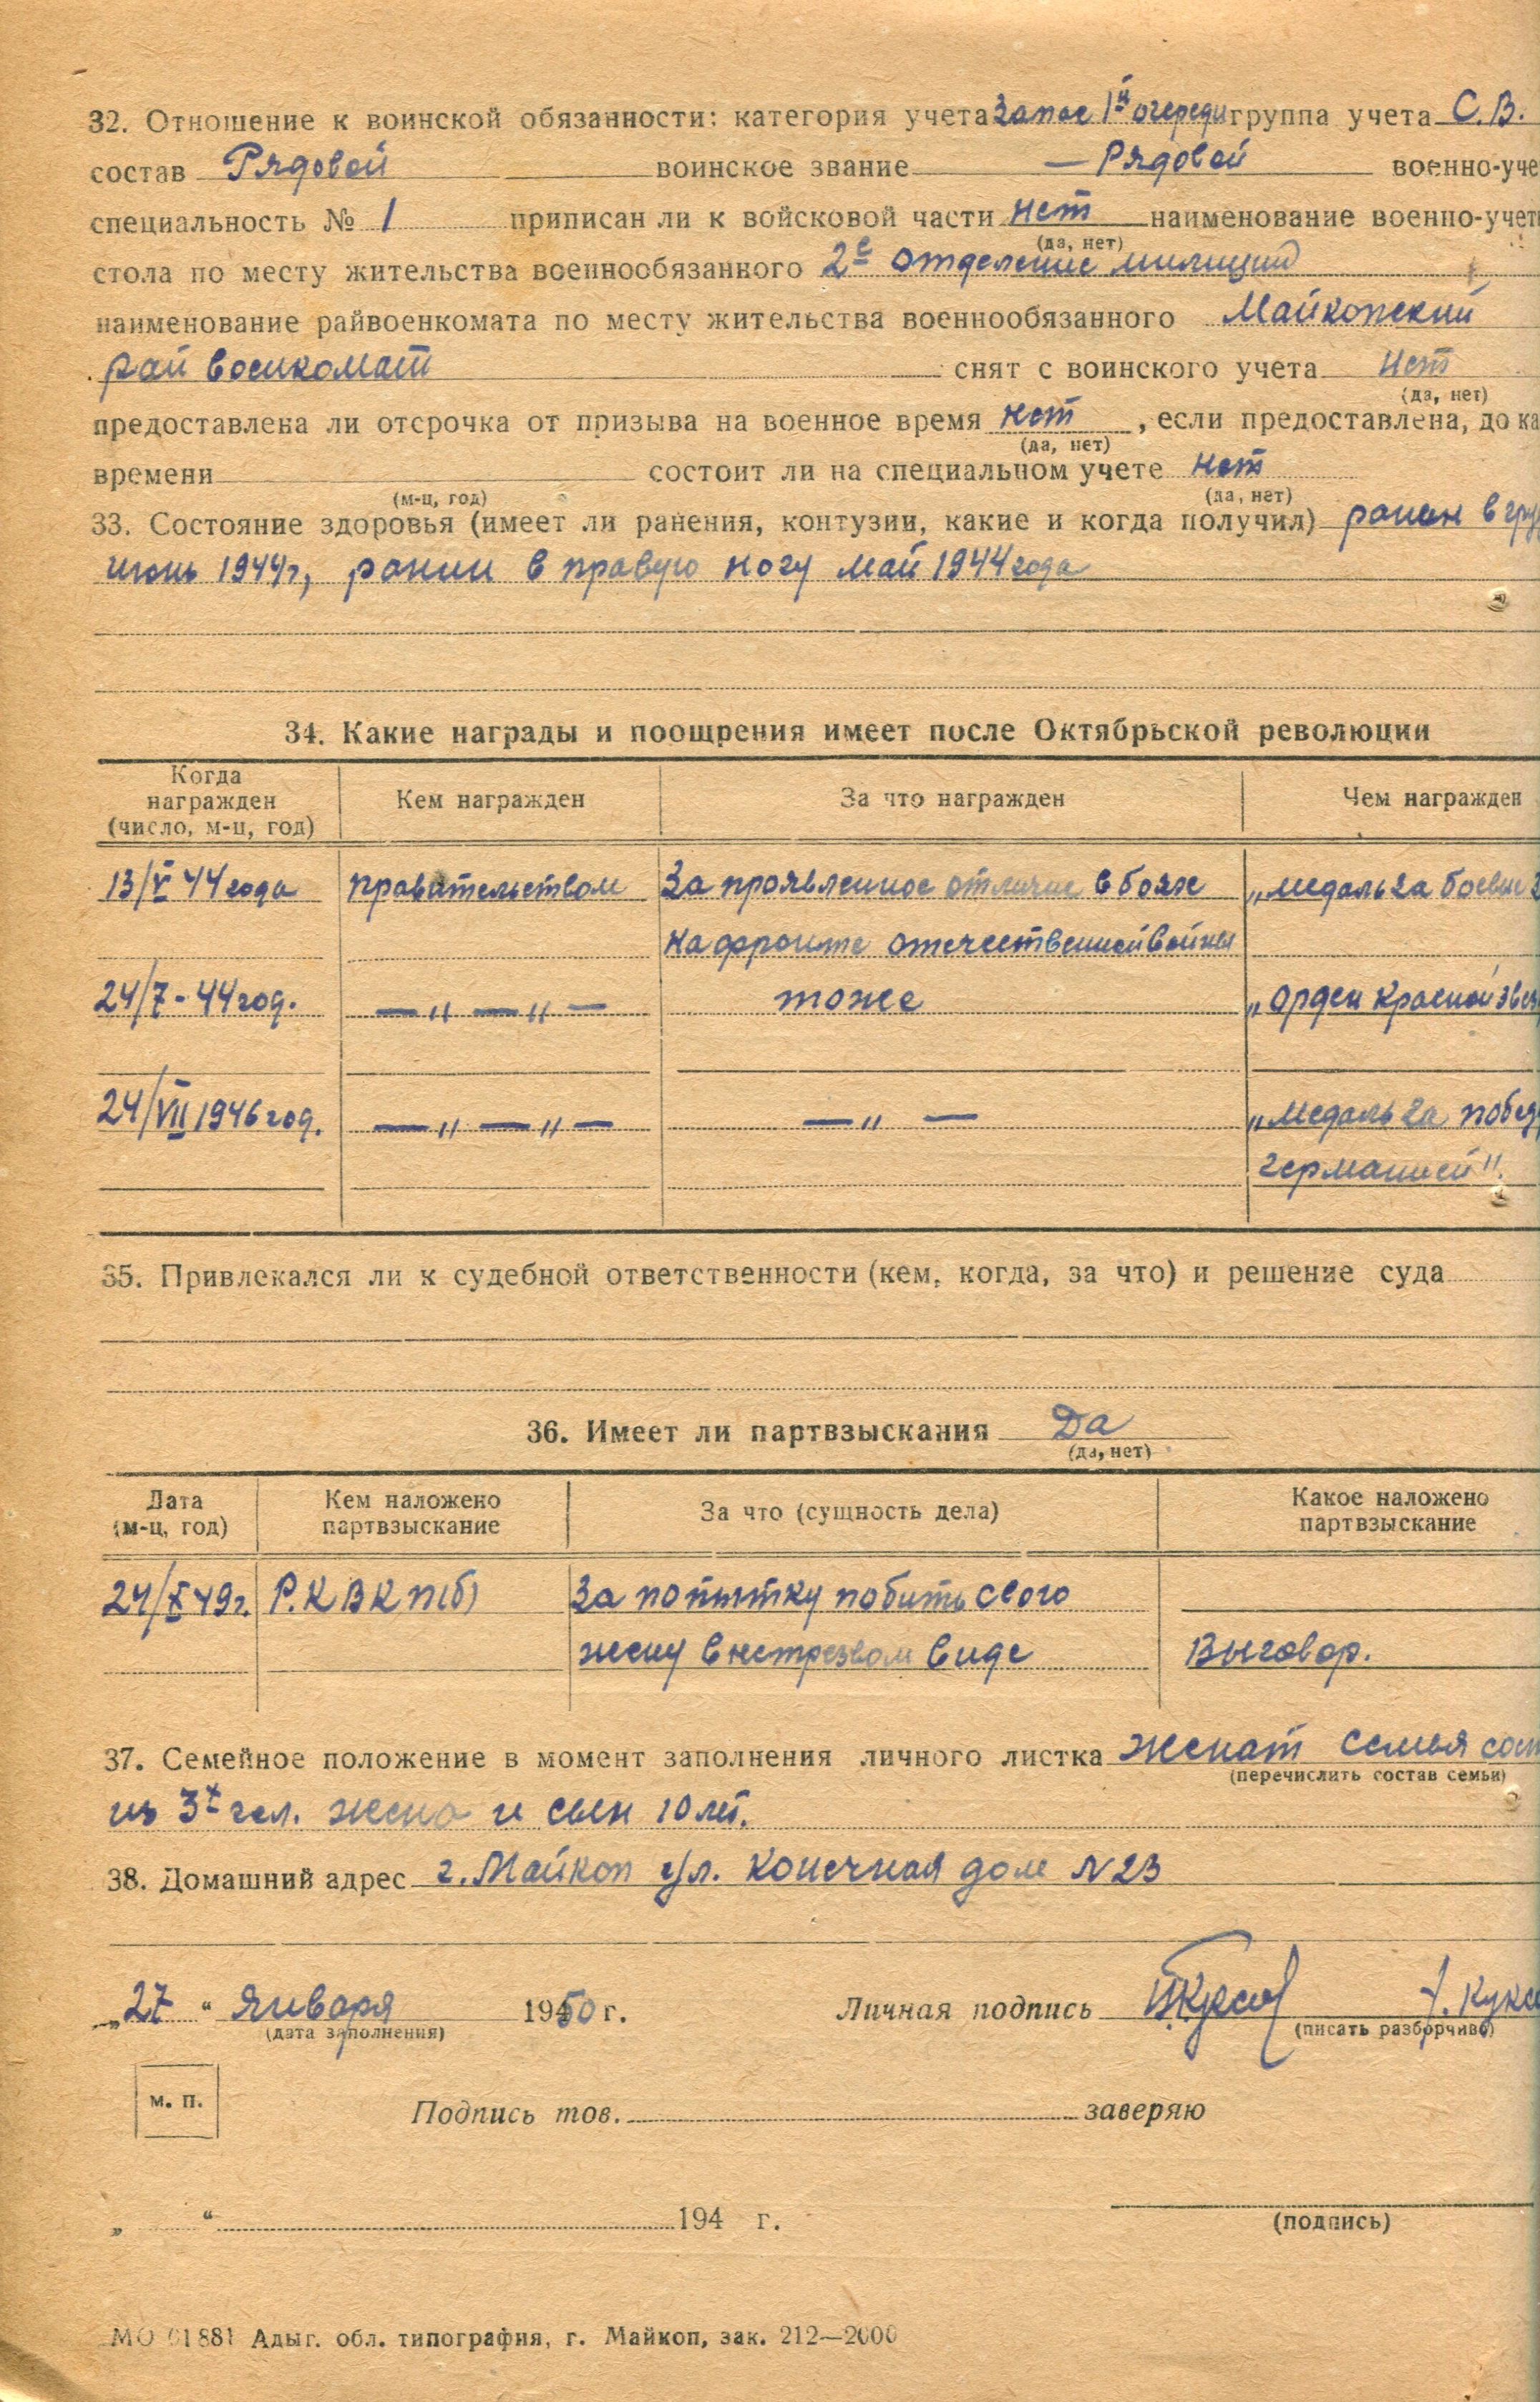 32. Отношение к воинской обязанности: категория учета Запас 1й очереди группа учета С.В.
состав Рядовой воинское звание — Рядовой военно-уче
специальность № 1 приписан ли к войсковой части нет наименование военно-учет
(да, нет)
стола по месту жительства военнообязанного 2е отделение милиции
наименование райвоенкомата по месту жительства военнообязанного Майкопский
рай военкомат снят с воинского учета нет
(да, нет)
предоставлена ли отсрочка от призыва на военное время нет, если предоставлена, до ка
(да, нет)
времени состоит ли на специальном учете нет
(м-ц, год) (да, нет)
33. Состояние здоровья (имеет ли ранения, контузии, какие и когда получил) ранен в гру
июнь 1944г, рании в правую ногу май 1944 года
34. Какие награды и поощрения имеет после Октябрьской революции
Когда награжден (число, м-ц, год) Кем награжден За что награжден Чем награжден
13/V 44 года правительством За проявленное отличие в боях „медаль за боевые з
на фронте отечественной войны
24/7 - 44 год. — „ — „ — тоже „орден красной звез
24/VII 1946 год. — „ — „ — — „ — „медаль за побед
германией".
35. Привлекался ли к судебной ответственности (кем, когда, за что) и решение суда
36. Имеет ли партвзыскания Да
(да, нет)
Дата (м-ц, год) Кем наложено партвзыскание За что (сущность дела) Какое наложено партвзыскание
24/X 49г. Р.К ВК П(б) За попытку побить свою
жену в нетрезвом виде Выговор.
37. Семейное положение в момент заполнения личного листка женат семья сос
(перечислить состав семьи)
из 3х чел. жена и сын 10 лет.
38. Домашний адрес г. Майкоп ул. Конечная дом N 23
„27" Января 1950 г. Личная подпись
(дата заполнения) (писать разборчиво)
м. п.
Подпись тов. заверяю
„ " 194 г.
(подпись)
МО 01881 Адыг. обл. типография, г. Майкоп, зак. 212—2000